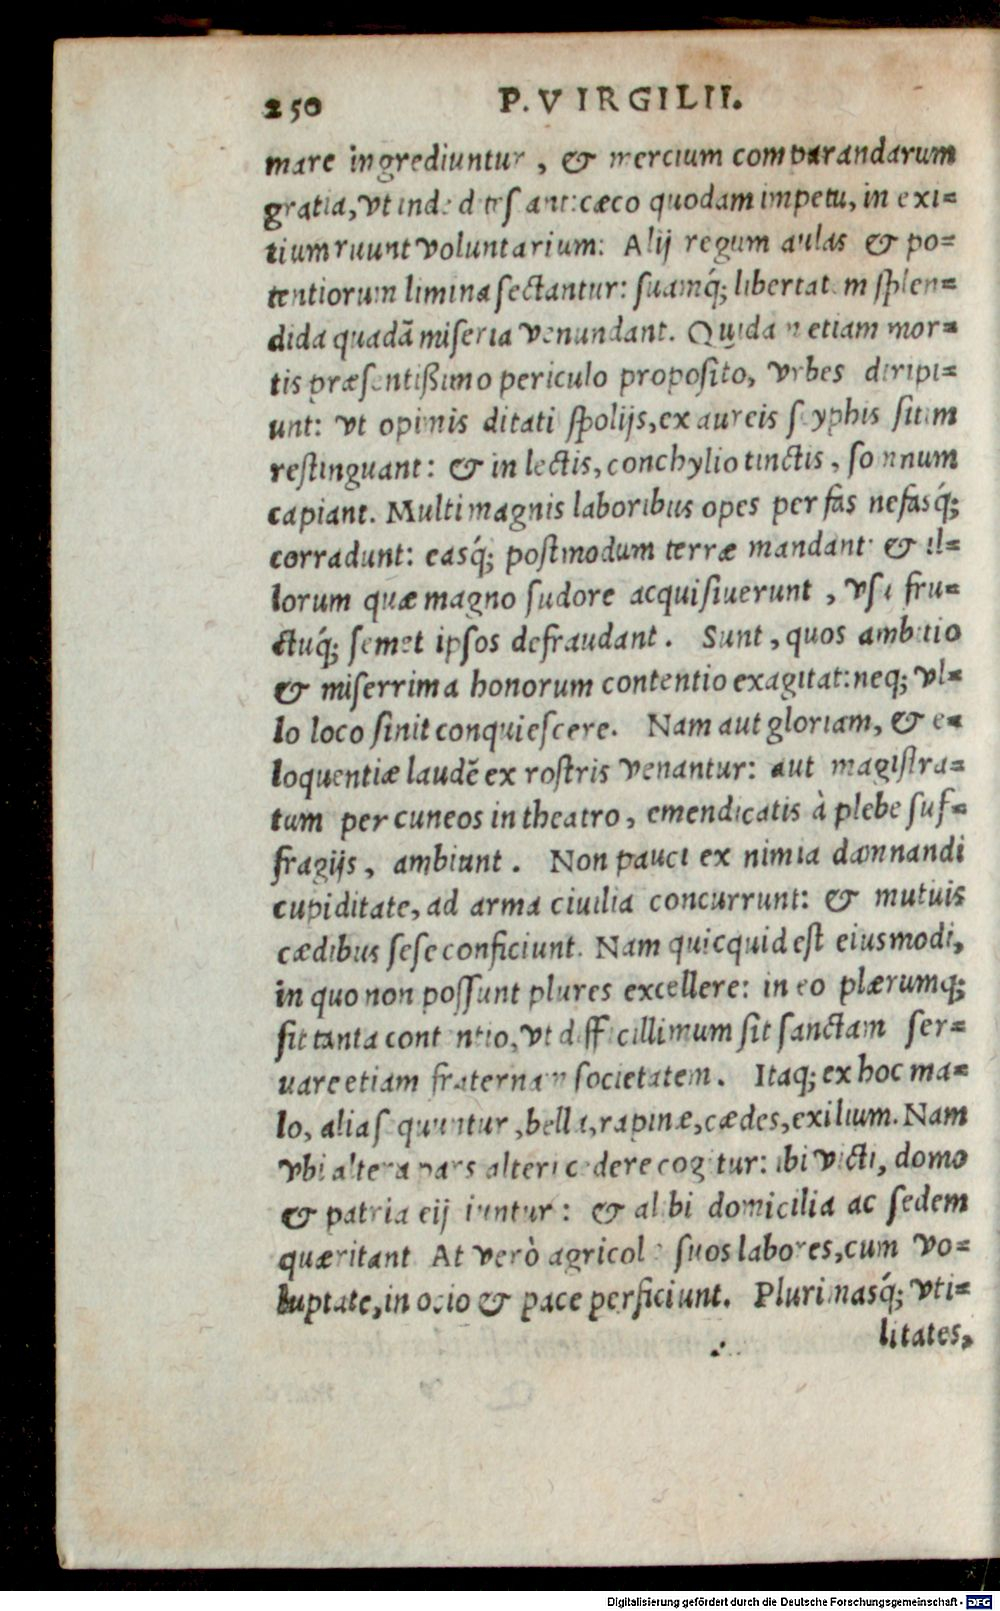 250 P. VIRGILII.
mare ingrediuntur, & mercium comparandarum
gratia, vt inde ditescant: cæco quodam impetu, in exi=
tium ruunt voluntarium: Alij regum aulas & po=
tentiorum limina sectantur: suamq́; libertatem splen=
dida quadā miseria venundant. Quidam etiam mor=
tis præsentißimo periculo proposito, vrbes diripi=
unt: vt opimis ditati spolijs, ex aureis scyphis sitim
restinguant: & in lectis, conchylio tinctis, somnum
capiant. Multi magnis laboribus opes per fas nefasq́;
corradunt: easq́; postmodum terræ mandant & il=
lorum quæ magno sudore acquisiuerunt, vsu fru=
ctuq́; semet ipsos defraudant. Sunt, quos ambitio
& miserrima honorum contentio exagitat: neq; vl=
lo loco sinit conquiescere. Nam aut gloriam, & e=
loquentiæ laudē ex rostris venantur: aut magistra=
tum per cuneos in theatro, emendicatis à plebe suf=
fragijs, ambiunt. Non pauci ex nimia damnandi
cupiditate, ad arma ciuilia concurrunt: & mutuis
cædibus sese conficiunt. Nam quicquid est eiusmodi,
in quo non possunt plures excellere: in eo plærumq;
fit tanta contentio, vt difficillimum sit sanctam ser=
uare etiam fraternam societatem. Itaq; ex hoc ma=
lo, alia sequuntur, bella, rapinæ, cædes, exilium. Nam
vbi altera pars alteri cedere cogitur: ibi victi, domo
& patria eijciuntur: & alibi domicilia ac sedem
quæritant At verò agricolæ suos labores, cum vo=
luptate, in ocio & pace perficiunt. Plurimasq́; vti=
litates,
Digitalisierung gefördert durch die Deutsche Forschungsgemeinschaft - DFG